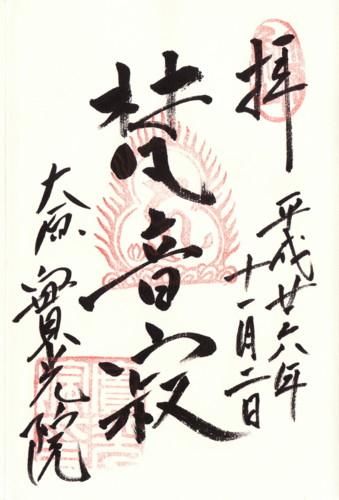 拝
平成廿六年
十一月二日
梵音寂
大原 實光院